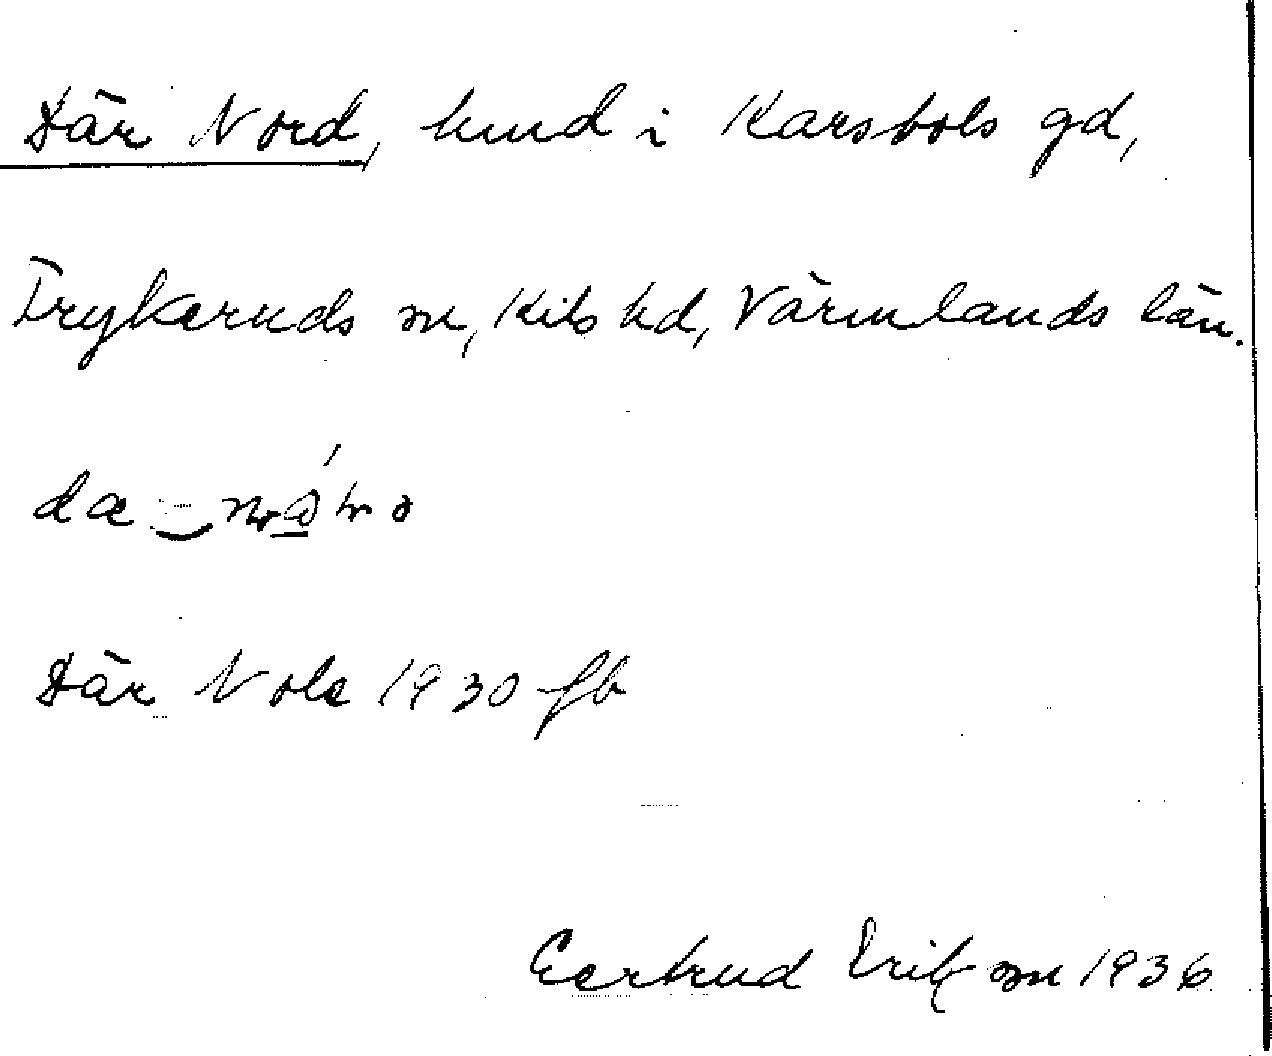 Där Nord, hmd i Karsbols gd,
Frykeruds sn, Kils hd, Värmlands län.
Där Nole 1930 fb
Gertrud Eriksson 1936